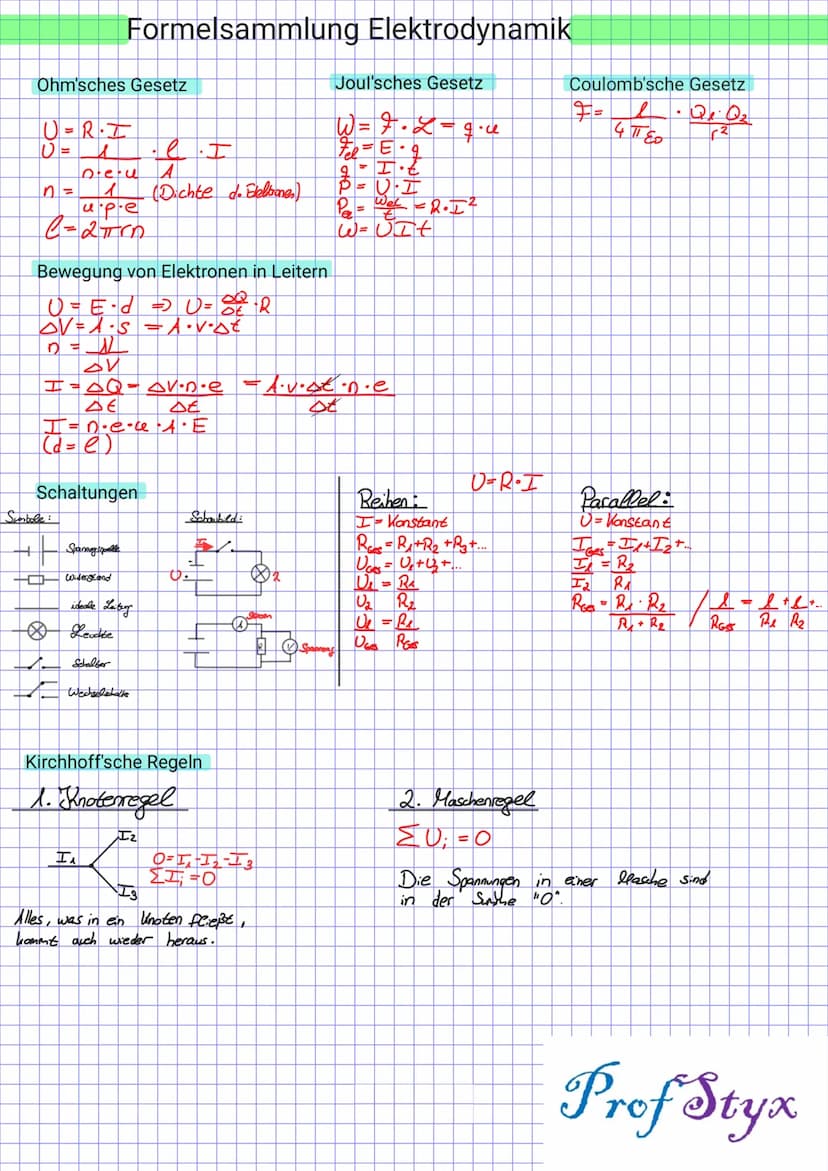 Formelsammlung Elektrodynamik
Ohm'sches Gesetz
U = R · I
U = 1/(n·e·u) · l/A · I
n = 1/(u·p·e) (Dichte d.
l = 2πrn
Joul'sches Gesetz
W = F · L = q · u
Fel = E · q
q = I · t
P = U · I
= Wel/t = R · I²
W = U I t
Coulomb'sche Gesetz
F = 1/(4πε₀) · Q₁·Q₂/r²
Bewegung von Elektronen in Leitern
U = E · d ⇒ U = ΔQ/Δt · R
ΔV = A · s = A · v · Δt
n = N/ΔV
I = ΔQ/Δt = ΔV·n·e/Δt = A·v·Δt·n·e/Δt
I = n·e·u·A·E
(d = l)
Schaltungen
Symbole:
Widerstand
ideale Leitung
Leuchte
Schalter
Schaubild:
I
U
2
A
Strom
R
V
Spannung
U = R · I
Reihen:
I = Konstant
RGes = R₁+R₂+R₃+...
UGes = U₁+U₂+...
U₁/U₂ = R₁/R₂
U₁/UGes = R₁/RGes
Parallel:
U = Konstant
IGes = I₁+I₂+..
I₁/I₂ = R₂/R₁
RGes = R₁·R₂/(R₁+R₂) / 1/RGes = 1/R₁ + 1/R₂+..
Kirchhoff'sche Regeln
1. Knotenregel
I₁
I₂
I₃
0 = I₁-I₂-I₃
ΣIᵢ = 0
Alles, was in ein Knoten fließt,
kommt auch wieder heraus.
2. Maschenregel
ΣUᵢ = 0
Die Spannungen in einer Masche sind
in der Summe "0".
Prof Styx